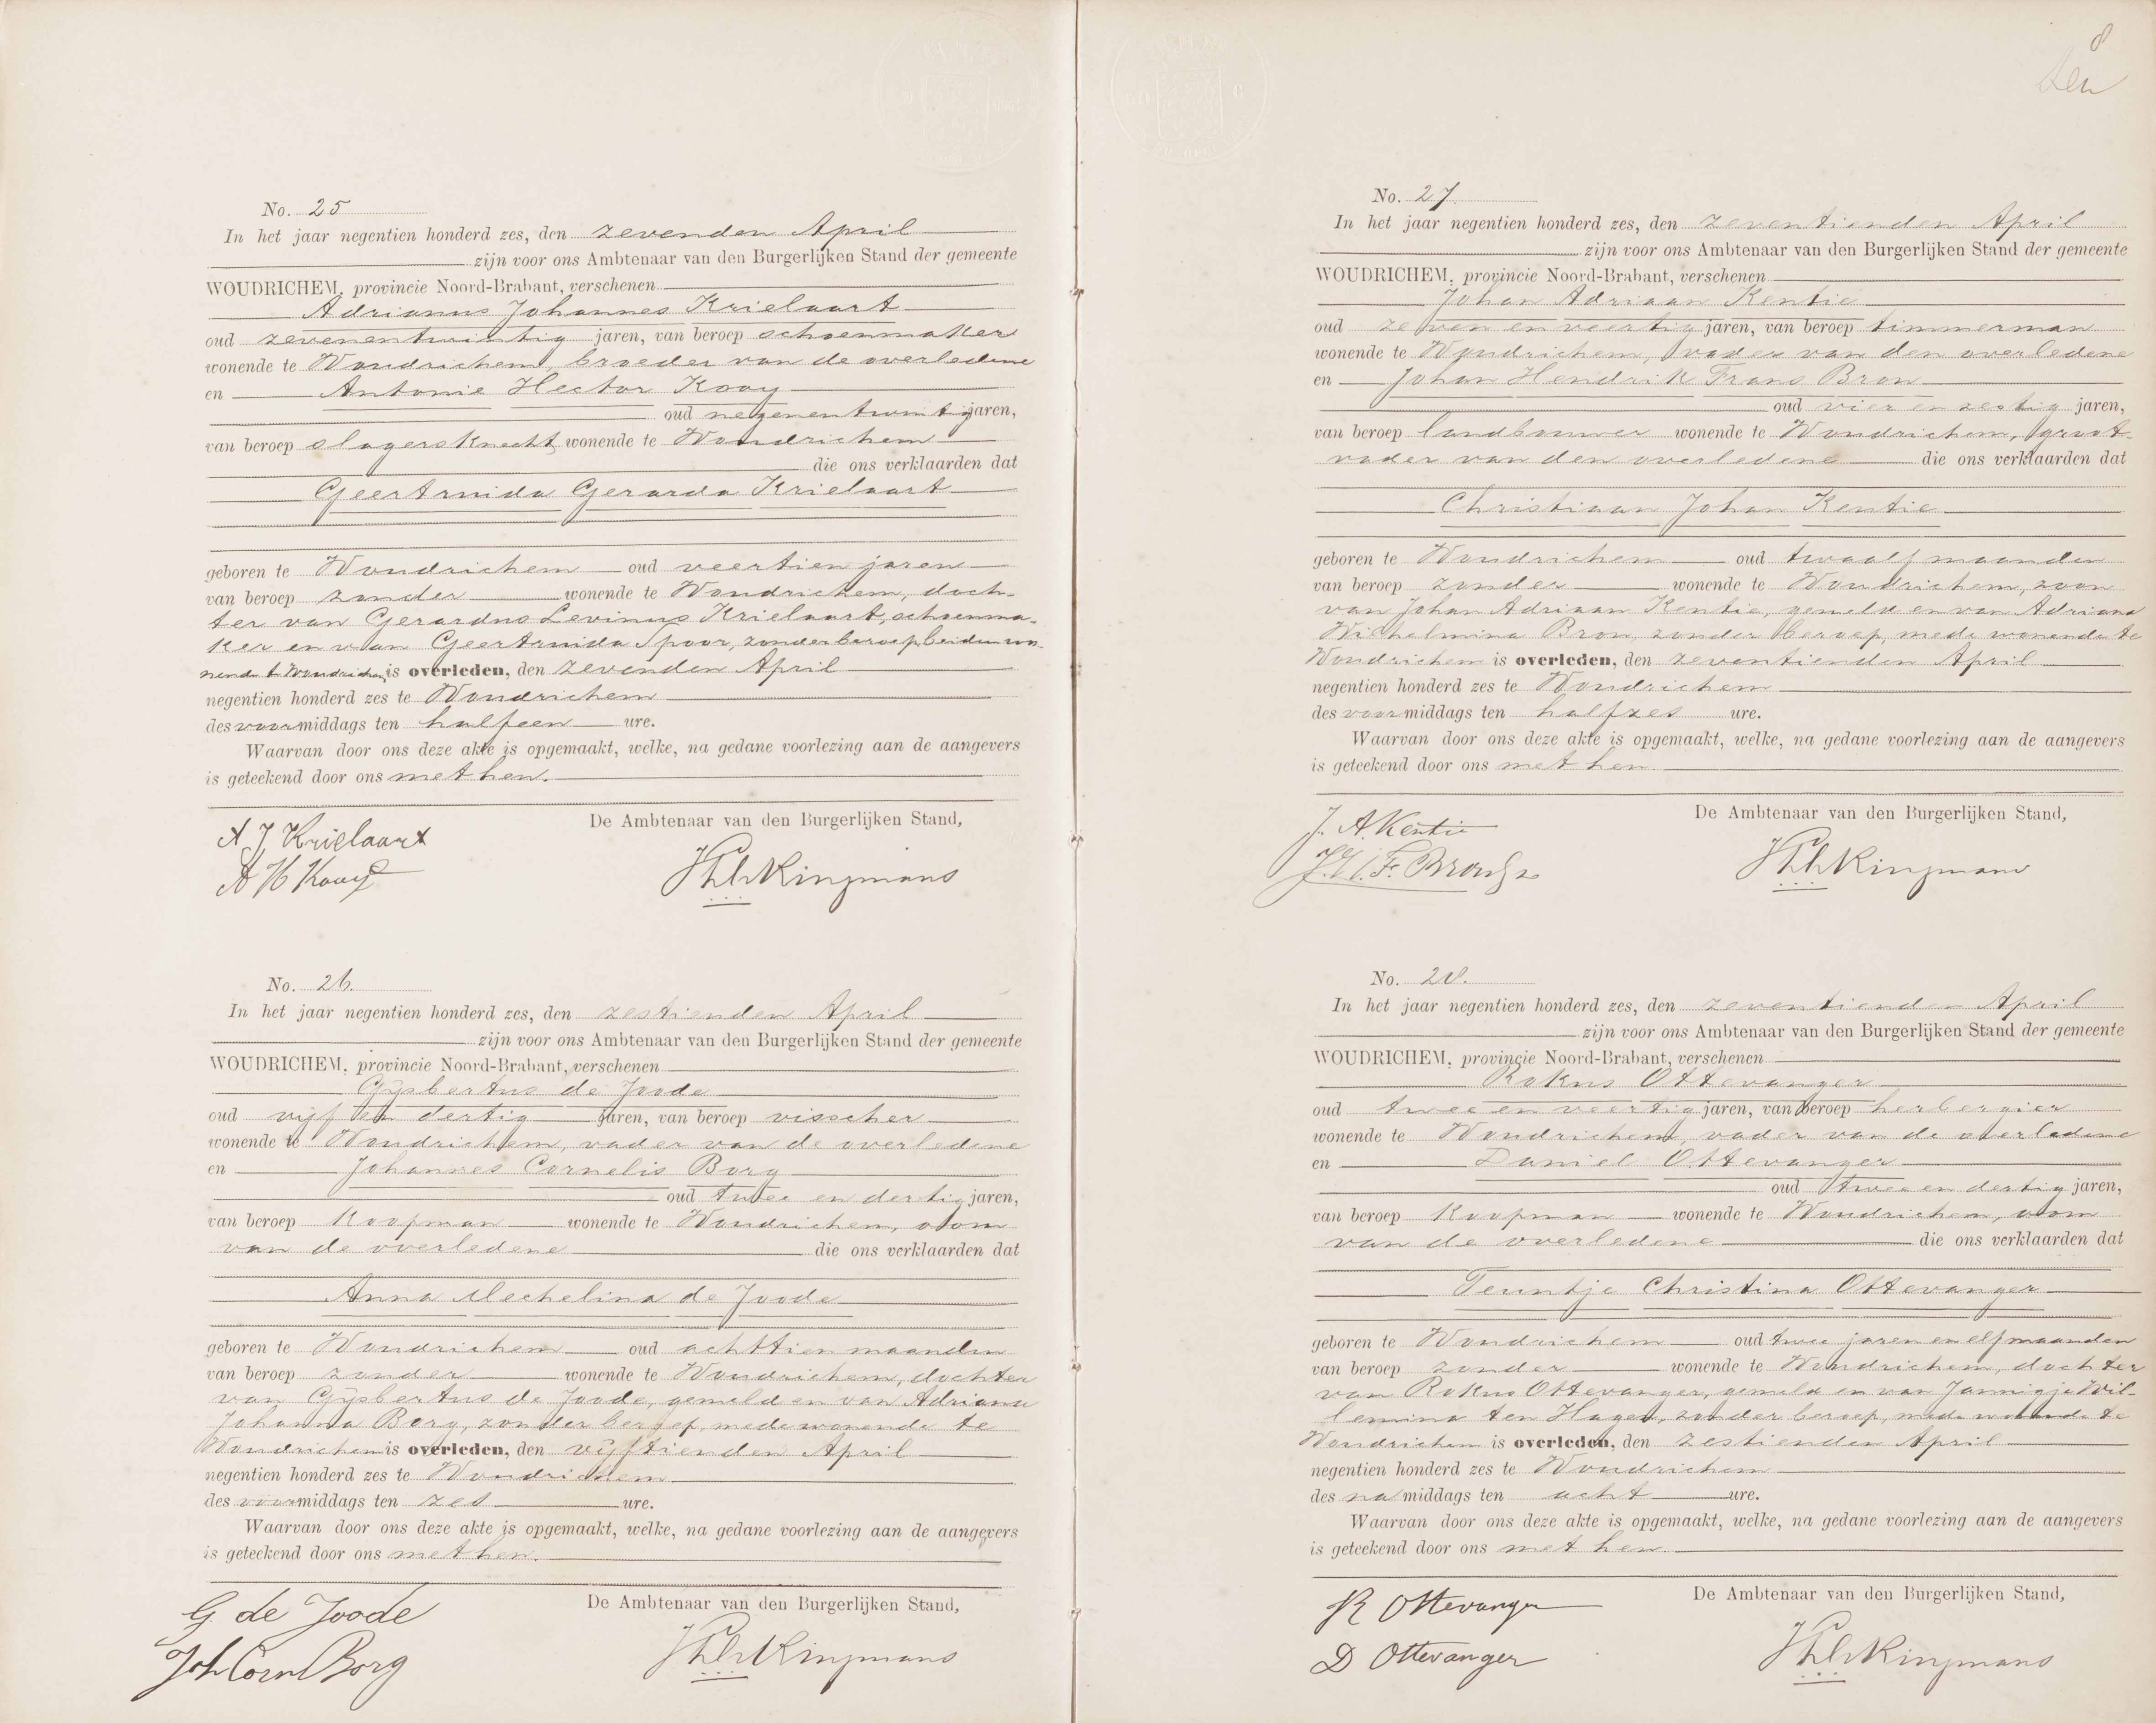 No. 25
In het jaar negentien honderd zes, den zevenden April
zijn voor ons Ambtenaar van den Burgerlijken Stand der gemeente
WOUDRICHEM, provincie Noord-Brabant, verschenen
Adrianus Johannes Krielaart
oud zevenentwintig jaren, van beroep schoenmaker
wonende te Woudrichem, broeder van de overledene
en Antonie Hector Kooy
oud negenentwintig jaren,
van beroep slagersknecht, wonende te Woudrichem
die ons verklaarden dat
Geertruida Gerarda Krielaart
geboren te Woudrichem oud veertien jaren
van beroep zonder wonende te Woudrichem, doch-
ter van Gerardus Levinus Krielaart, schoenma-
ker en van Geertruida Spoor, zonder beroep, beiden wo-
nende te Woudrichem, is overleden, den zevenden April
negentien honderd zes te Woudrichem
des voormiddags ten halfeen ure.
Waarvan door ons deze akte is opgemaakt, welke, na gedane voorlezing aan de aangevers
is geteekend door ons met hen.
De Ambtenaar van den Burgerlijken Stand,
A J Krielaart
A H Kooy
No. 26.
In het jaar negentien honderd zes, den zestienden April
zijn voor ons Ambtenaar van den Burgerlijken Stand der gemeente
WOUDRICHEM, provincie Noord-Brabant, verschenen
Gijsbertus de Joode
oud vijf en dertig jaren, van beroep visscher
wonende te Woudrichem, vader van de overledene
en Johannes Cornelis Borg
oud twee en dertig jaren,
van beroep Koopman wonende te Woudrichem, oom
van de overledene die ons verklaarden dat
Anna Mechelina de Joode
geboren te Woudrichem oud achttien maanden
van beroep zonder wonende te Woudrichem, dochter
van Gijsbertus de Joode, gemeld en van Adriana
Johanna Borg, zonder beroep, mede wonende te
Woudrichem is overleden, den vijftienden April
negentien honderd zes te Woudrichem
des voormiddags ten zes ure.
Waarvan door ons deze akte is opgemaakt, welke, na gedane voorlezing aan de aangevers
is geteekend door ons met hen.
De Ambtenaar van den Burgerlijken Stand,
G. de Joode
Joh Corn Borg
8
No. 27.
In het jaar negentien honderd zes, den zeventienden April
zijn voor ons Ambtenaar van den Burgerlijken Stand der gemeente
WOUDRICHEM, provincie Noord-Brabant, verschenen
Johan Adriaan Kentie
oud zeven en veertig jaren, van beroep timmerman
wonende te Woudrichem, vader van den overledene
en Johan Hendrik Frans Bron
oud vier en zestig jaren,
van beroep landbouwer wonende te Woudrichem, groot-
vader van den overledene die ons verklaarden dat
Christiaan Johan Kentie
geboren te Woudrichem oud twaalf maanden
van beroep zonder wonende te Woudrichem, zoon
van Johan Adriaan Kentie, gemeld en van Adriana
Wilhelmina Bron, zonder beroep, mede wonende te
Woudrichem is overleden, den zeventienden April
negentien honderd zes te Woudrichem
des voormiddags ten halfzes ure.
Waarvan door ons deze akte is opgemaakt, welke, na gedane voorlezing aan de aangevers
is geteekend door ons met hen.
De Ambtenaar van den Burgerlijken Stand,
J. A. Kentie
J. H. F. Bron
No. 28.
In het jaar negentien honderd zes, den zeventienden April
zijn voor ons Ambtenaar van den Burgerlijken Stand der gemeente
WOUDRICHEM, provincie Noord-Brabant, verschenen
Rokus Ottevanger
oud twee en veertig jaren, van beroep herbergier
wonende te Woudrichem, vader van de overledene
en Daniel Ottevanger
oud twee en dertig jaren,
van beroep Koopman wonende te Woudrichem, oom
van de overledene die ons verklaarden dat
Teuntje Christina Ottevanger
geboren te Woudrichem oud twee jaren en elf maanden
van beroep zonder wonende te Woudrichem, dochter
van Rokus Ottevanger, gemeld en van Jannigje Wil-
lemina ten Hagen, zonder beroep, mede wonende te
Woudrichem is overleden, den zestienden April
negentien honderd zes te Woudrichem
des namiddags ten acht ure.
Waarvan door ons deze akte is opgemaakt, welke, na gedane voorlezing aan de aangevers
is geteekend door ons met hen.
De Ambtenaar van den Burgerlijken Stand,
R Ottevanger
D Ottevanger